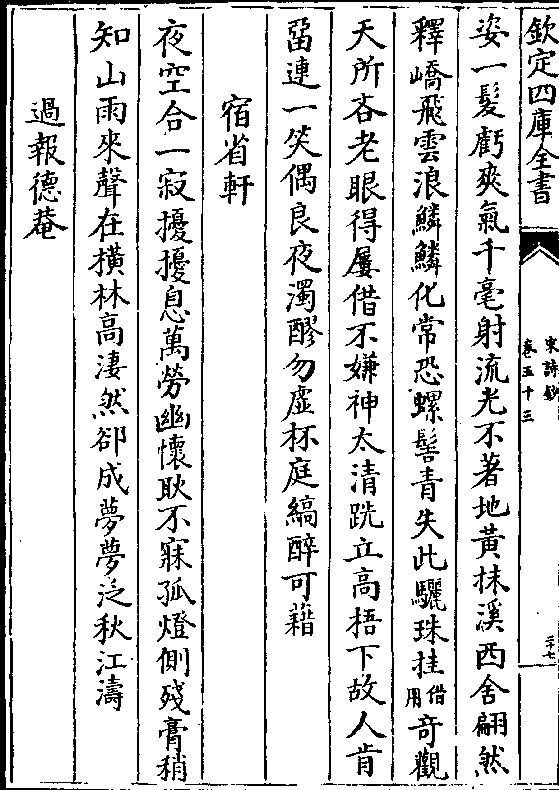 欽定四庫全書
宋詩鈔
卷五十三
二十七
姿一髮虧爽氣千毫射流光不著地黃抹溪西舍翩然
釋嶠飛雲浪鱗鱗化常恐螺髻青失此驪珠挂借用奇觀
天所吝老眼得屢借不嫌神太清跣立高梧下故人肯
留連一笑偶良夜濁醪勿虛杯庭縞醉可藉
宿省軒
夜空合一寂擾擾息萬勞幽懷耿不寐孤燈側殘膏稍
知山雨來聲在橫林高淒然卻成夢夢泛秋江濤
過報德菴